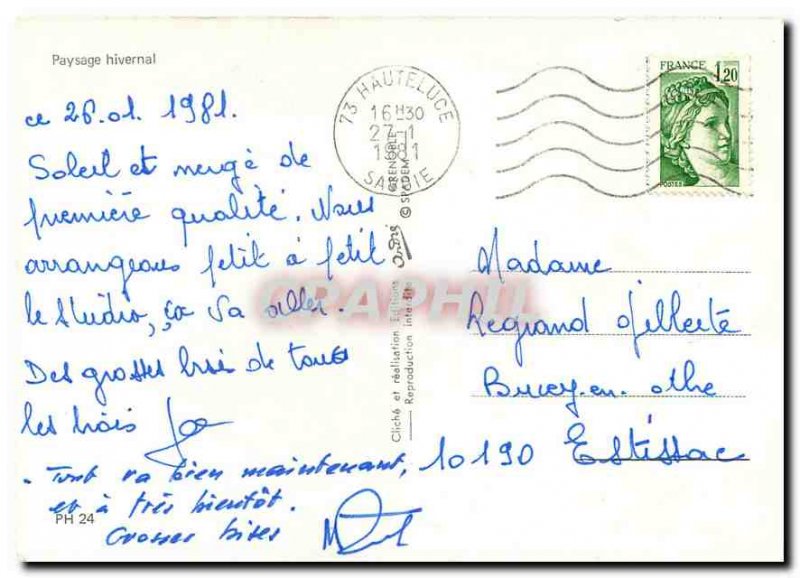 Paysage hivernal
ce 26.01.1981.
Soleil et neige de
première qualité. Nous
arrangeons petit à petit
le studio, ça va aller.
Des grosses bises de tous
les trois
- Tout va bien maintenant,
et à très bientôt.
Grosses bises
PH 24
73 HAUTELUCE
16H30
27-1
1981
SAVOIE
FRANCE
1,20
POSTES
GRENOBLE
© SPADEM
André
Cliché et réalisation Editions
Reproduction interdite
Madame
Legrand Gilberte
Bucey-en-Othe
10190 Estissac